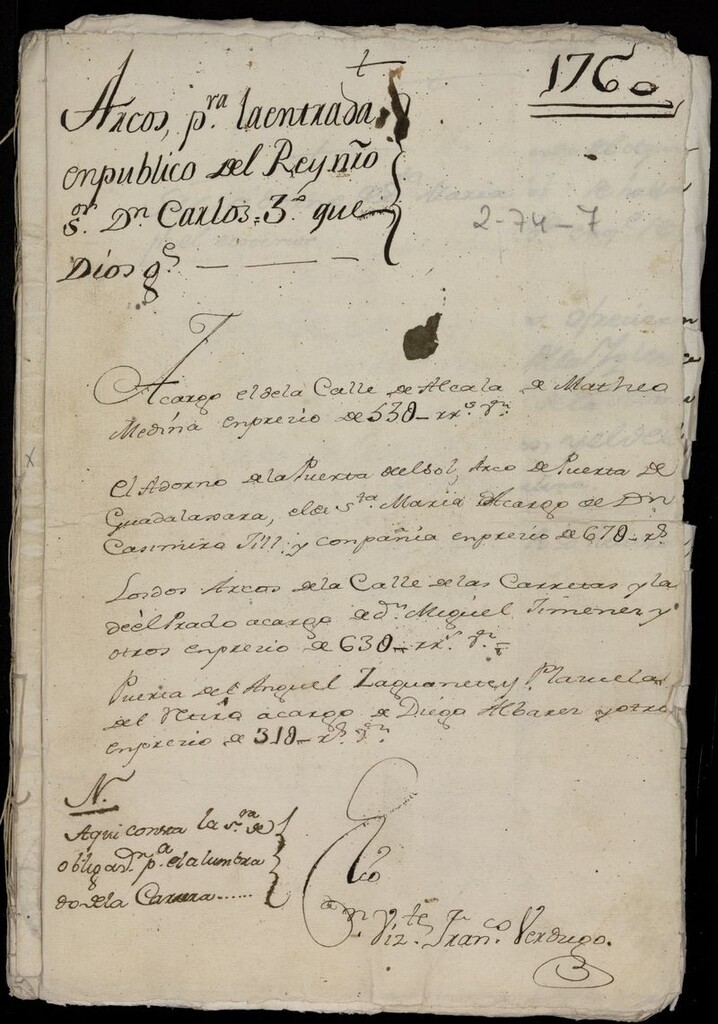 1760
Arcos, p.ra la entrada
en publico del Rey nr̃o
s.or Dn Carlos 3.o que
Dios g.e
2-74-7
A cargo el de la Calle de Alcala de Matheo
Medina en precio de 530_ rr.s v.n
el Adorno de la Puerta del Sol, Arco de Puerta de
Guadalaxara, el de s.ta Maria Acargo de Dn
Casimiro Till y compañia en precio de 670_ rs
Los dos Arcos de la Calle de las Carretas y la
de el Prado a cargo de d.n Miguel Ximenez y
otros en precio de 630_ rr.s v.n
Puerta del Anguel Zaguanetes y Plazuela
del Retiro a cargo de Diego Albarez y otro
en precio de 310_ rs v.n
N.
Aqui consta la s.ra de
obligaz.n p.a el alumbra
do de la Carrera......
Dn Viz.te Fran.co Verdugo.